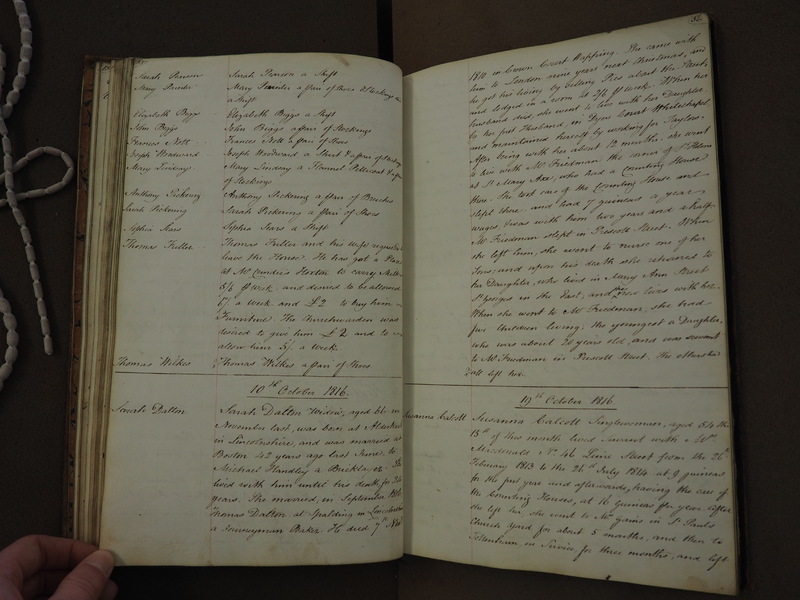 Sarah Pearson Sarah Pearson a Shift
Mary Mary a pair of Shoes & Stockings &
a Shift
Elizabeth Biggs Elizabeth Biggs a Shift
John Biggs John Biggs a pair of Stockings
Frances Nott Frances Nott a pair of Shoes
Joseph Woodward Joseph Woodward a Shirt & a pair of Stockings
Mary Lindsey Mary Lindsey a Flannel Petticoat & a pair
of Stockings
Anthony Pickering Anthony Pickering a pair of Breeches
Sarah Pickering Sarah Pickering a pair of Shoes
Sophia Sears Sophia Sears a Shift
Thomas Fuller Thomas Fuller and his wife
leave the House. He has got a Place
at Mr Hoxton to carry Milk
5/6 P week and desired to be allowed
6/ a week and £2 to buy him
Furniture. The Churchwarden was
desired to give him £2 and to
allow him 5/ a week.
Thomas Wilkes Thomas Wilkes a pair of Shoes
10th October 1816.
Sarah Dalton Sarah Dalton Widow, aged 66 in
November last, was born at
in Lincolnshire, and was married at
Boston 42 years ago last June, to
Michael Handley a
lived with him until his death, for 24
years. She married, in September
Thomas Dalton at Spalding in Lincolnshire
a Journeyman Baker. He died 7th Novr
1810 in Crown Court Wapping. She came with
him to London nine years next Christmas, and
he got his living by selling Pies about the Streets,
and lodged in a room at 2/6 P week. When her
husband died, she went to live with her Daughter
by her first Husband, in Dyers Court Whitechapel
and maintained herself by working for Taylors.
After being with her about 12 months, she went
to live with Mr Friedman the corner of St Helens
at St Mary Axe, who had a Counting House
there. She took care of the Counting House and
slept there and had 7 guineas a year
wages. Was with him two years and a half.
Mr Friedman slept in Prescott Street. When
she left him, she went to nurse one of her
Sons, and upon his death she returned to
her Daughter, who lived in Mary Ann Street
St Georges in the East, and she now lives with her.
When she went to Mr Friedman, she had
four Children living; the youngest a Daughter,
who was about 20 years old, and was servant
to Mr Friedman in Prescott Street. The others had
all left her.
19th October 1816.
Susanna Calcott Susanna Calcott Singlewoman, aged 54 the
15th of this month lived Servant with Mr
Macdonald No 46 Lime Street from the 26th
February 1813 to the 26th July 1814 at 9 guineas
for the first year and afterwards, having the care of
the Counting House, at 16 Guineas per year. After
she left him she went to Mr Gains in St Pauls
Church Yard for about 5 months, and then to
Tottenham, in Service for three months, and left